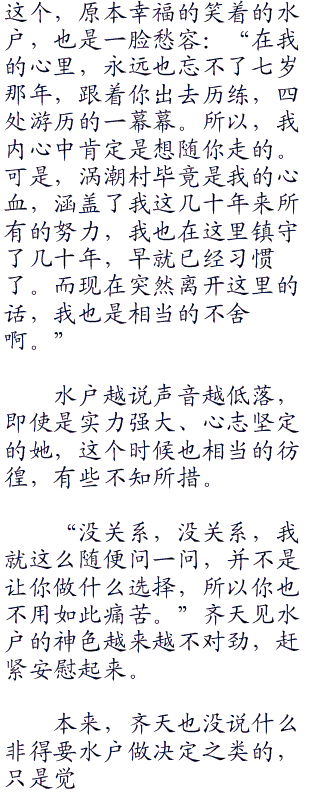 这个，原本幸福的笑着的水
户，也是一脸愁容：“在我
的心里，永远也忘不了七岁
那年，跟着你出去历练，四
处游历的一幕幕。所以，我
内心中肯定是想随你走的。
可是，涡潮村毕竟是我的心
血，涵盖了我这几十年来所
有的努力，我也在这里镇守
了几十年，早就已经习惯
了。而现在突然离开这里的
话，我也是相当的不舍
啊。”
水户越说声音越低落，
即使是实力强大、心志坚定
的她，这个时候也相当的彷
徨，有些不知所措。
“没关系，没关系，我
就这么随便问一问，并不是
让你做什么选择，所以你也
不用如此痛苦。”齐天见水
户的神色越来越不对劲，赶
紧安慰起来。
本来，齐天也没说什么
非得要水户做决定之类的，
只是觉